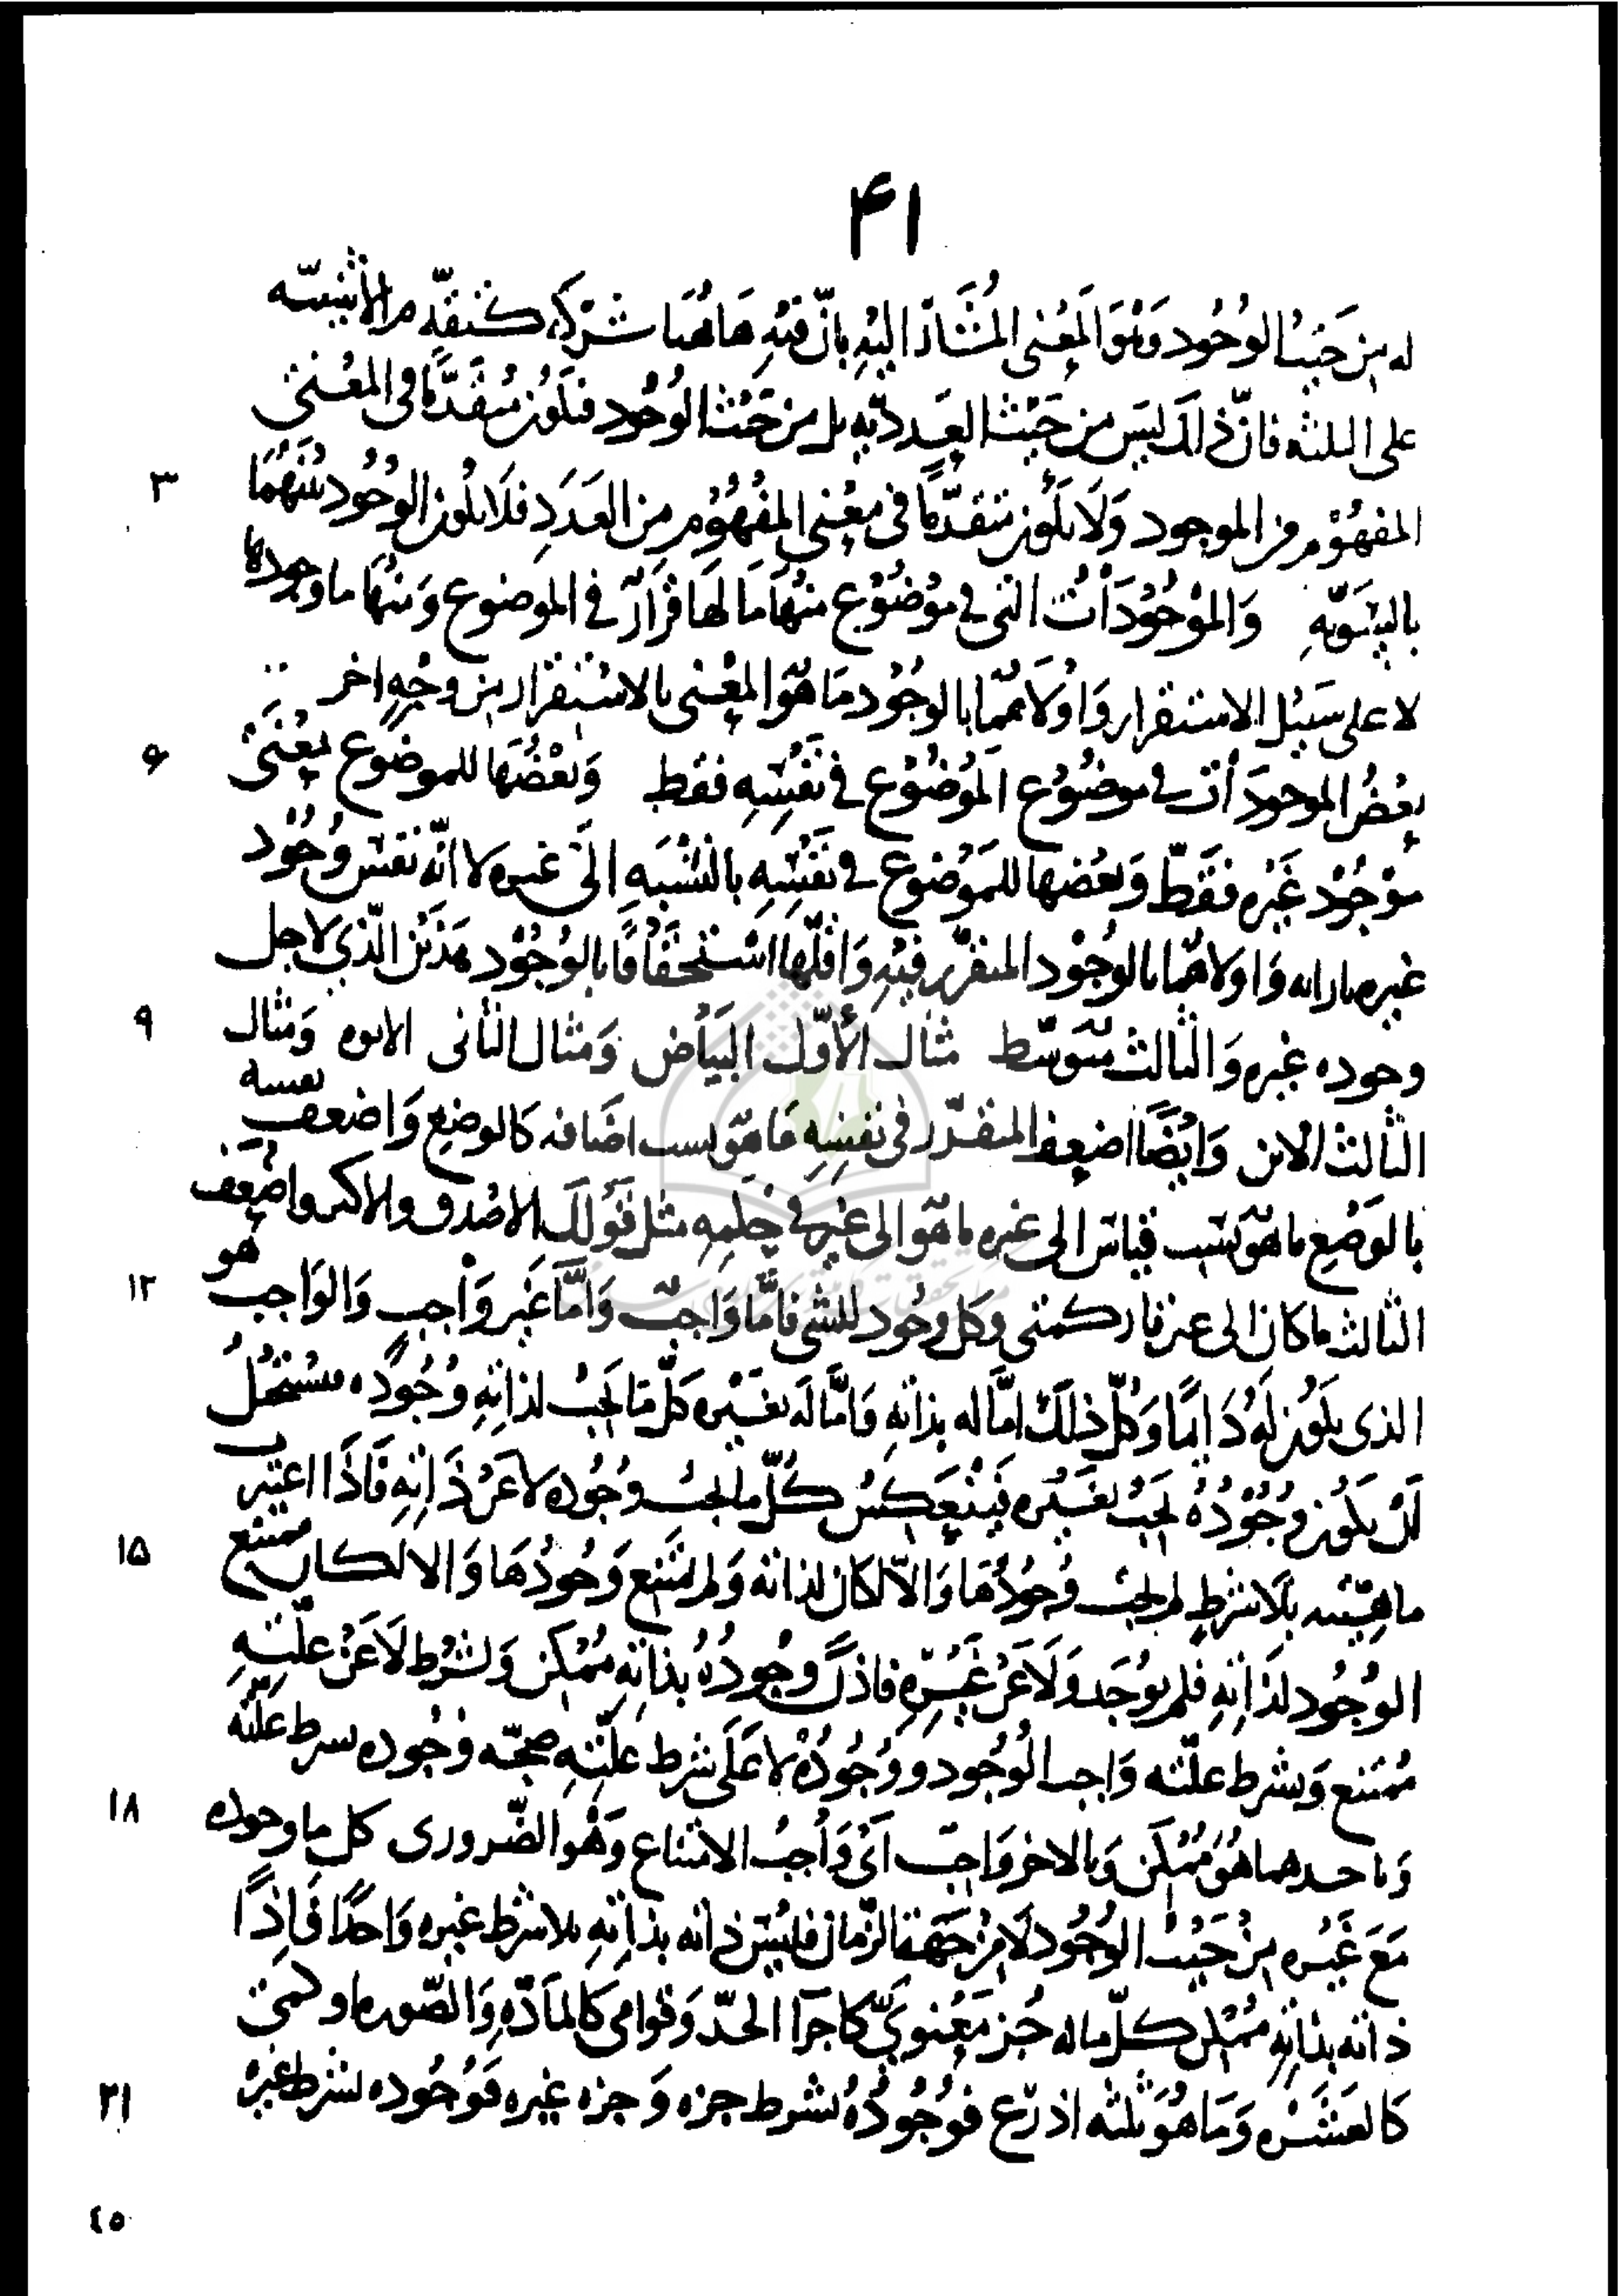 ۴۱
له من حَيثُ الوُجُود وَهُوَ المَعْنى المُشَار اليْهِ بِانّ فيْهِ هَاهُنا شركة كتقدّم الاثنينيّه
على الثلثه فانّ ذلك ليسَ من حَيْث العَدديّه بل من حَيْث الوُجُود فيكون مُتقدّمًا فى المعْنى
٣
المفهُوْم من الموجود وَلَا يَكون متقدّمًا فى معْنى المفْهُوْم من العَدَدِ فلا يكون الوجُود بَيْنهُمَا
بالسَويّهِ وَالموْجُوْدَاتُ التى فى موْضُوْع منْهَا مَا لهَا قرَارٌ فى الموضوع وَمنهَا ما وجودها
لا على سَبيْل الاستقرار وَاوْلاهما بالوجُود مَا هوَ المعْنى بالاستقرار من وجْهٍ اخر
۶
بعْضُ الموجودَات فى موضوْع المَوْضُوْع فى نفْسِهِ فقط وَبَعْضُهَا للموضوع بمعْنَى
موْجُوْد غَيْره فقَط وَبعْضها للمَوْضوع فى نفْسِهِ بالنسْبَهِ الى غيره لا انّه نفس وُجُوْد
غيره بازائه وَاولاهما بالوجُوْد المتقرّر فيْهِ وَاقلّها استحقاقًا بالوُجُوْد هَذيْن الّذي لاجل
٩
وجوده غيره وَالثالث متوَسّط مثال الأوّل البَيَاض وَمثال الثانى الابوه وَمثال
الثالث الاين وَايْضًا اضعف المتقرّر فى نفسِهِ مَا هوَ بسبب اضَافه كالوضع وَاضعف نفسه
بالوَضْع ما هوَ بسبب قياس الى غيره ما هوَ الى غيره فى حكمِهِ مثل قوْلك الاصْدق والاكبر واضْعف
١٢
الثالث ما كان الى غير قار كمتى وكل وجُود للشى فامَّا وَاجبٌ وَامَّا غَيْر وَاجب وَالوَاجب هو
الذى يكون لَهُ دَايمًا وَكُلّ ذلك امَّا له بذاته وَامَّا لَه بغَيْره كلّ مَا يجبُ لذاتِهِ وُجُوده فيسْتحيْلُ
ان يكون وجُوْدُهُ يجبُ بغَيْره فيَنْعَكِسُ كُلّ ما يجبُ وجُوْده لا عَنْ ذَاتِهِ فَاذَا اعتبرت
١۵
ماهيّته بلا شرطٍ لم يجبْ وجُوْدُهَا وَالّا لكان لذاته وَلم يمتنع وَجُوْدُهَا وَالا لكان ممتنع
الوُجُود لذاتِهِ فلم يوُجَد وَلَا عَنْ غيْره فاذنْ وجُودُهُ بذاتِهِ مُمْكن وَبشرْط لا عَن علّتِهِ
مُمتنع وَبشرط علّته وَاجب الوُجُود ووجُوْدُهُ لا عَلَى شرط علّتِهِ صحّه وجُوده بشرط علّته
١٨
وَباحدهما هُوَ ممْكن وَبالاخر وَاجبٌ اىْ وَاجبُ الامتناع وَهُوَ الضّرورى كل ما وجوده
مَعَ غَيْره منْ حَيْثُ الوُجُود لَا منْ جهَة الزّمان فليْسَ ذاته بذاتِهِ بلا شرط غيره وَاحدًا فَاِذًا
ذاته بذاتِهِ ممْكن كلّ ما له جُز معْنوىّ كاجزآ الحدّ وَقوامى كالمادّهِ وَالصّوره او كمىّ
٢١
كالعَشَره وَمَا هُوَ ثلثه اذرع فوُجُوْدُهُ بشرط جزه وَجزه غيره فوُجُوده بشرط غيره
٤٥